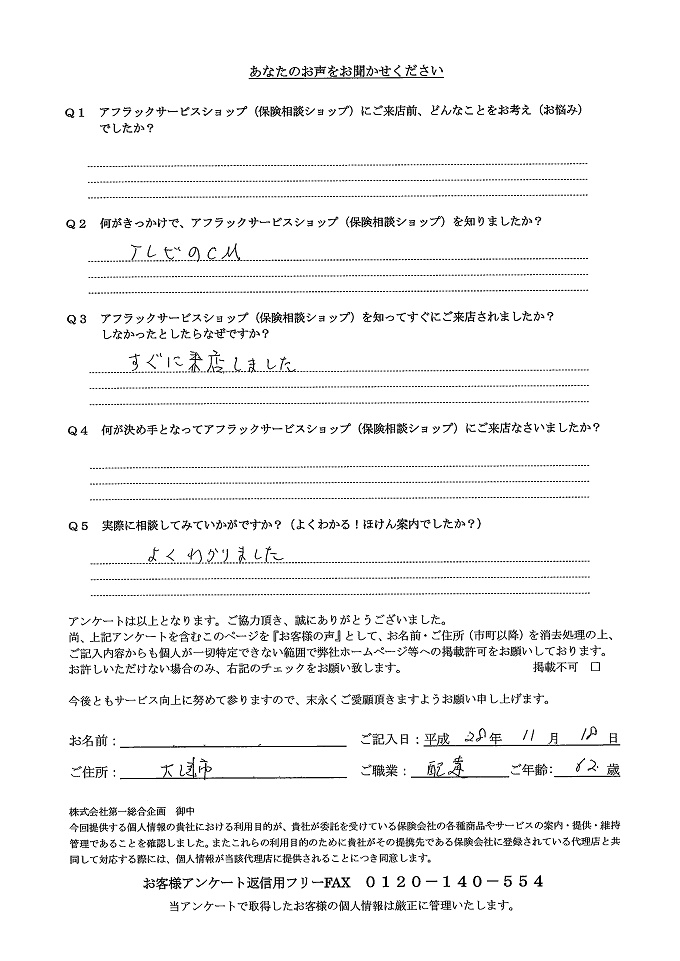 あなたのお声をお聞かせください
Q1 アフラックサービスショップ（保険相談ショップ）にご来店前、どんなことをお考え（お悩み）
でしたか？
Q2 何がきっかけで、アフラックサービスショップ（保険相談ショップ）を知りましたか？
テレビのCM
Q3 アフラックサービスショップ（保険相談ショップ）を知ってすぐにご来店されましたか？
しなかったとしたらなぜですか？
すぐに来店しました
Q4 何が決め手となってアフラックサービスショップ（保険相談ショップ）にご来店なさいましたか？
Q5 実際に相談してみていかがですか？（よくわかる！ほけん案内でしたか？）
よくわかりました
アンケートは以上となります。ご協力頂き、誠にありがとうございました。
尚、上記アンケートを含むこのページを『お客様の声』として、お名前・ご住所（市町以降）を消去処理の上、
ご記入内容からも個人が一切特定できない範囲で弊社ホームページ等への掲載許可をお願いしております。
お許しいただけない場合のみ、右記のチェックをお願い致します。 掲載不可 □
今後ともサービス向上に努めて参りますので、末永くご愛顧頂きますようお願い申し上げます。
お名前： ご記入日：平成 28年 11 月 18 日
ご住所： 市 ご職業： 配 ご年齢： 62 歳
株式会社第一総合企画 御中
今回提供する個人情報の貴社における利用目的が、貴社が委託を受けている保険会社の各種商品やサービスの案内・提供・維持
管理であることを確認しました。またこれらの利用目的のために貴社がその提携先である保険会社に登録されている代理店と共
同して対応する際には、個人情報が当該代理店に提供されることにつき同意します。
お客様アンケート返信用フリーFAX ０１２０－１４０－５５４
当アンケートで取得したお客様の個人情報は厳正に管理いたします。